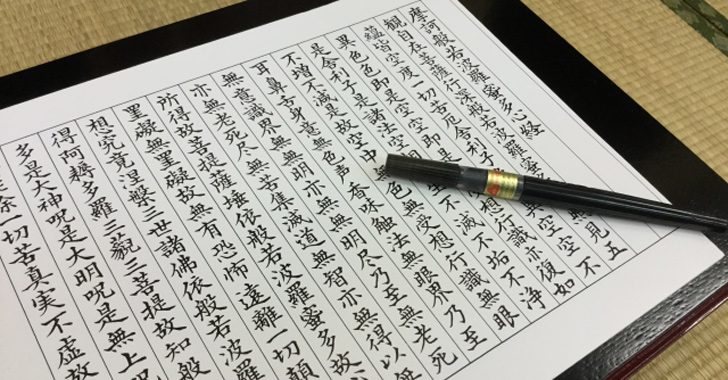 摩訶般若波羅蜜多心経
観自在菩薩行深般若波羅蜜見五
蘊皆空度一切苦厄舎利子空空不
異色色即是空空即是想行識亦復如
是舎利子是諸法空不滅不垢不浄
不増不減是故空中無色無受想行識無眼
耳鼻舌身意無色声香味触法無眼界乃至
無意識界無無明亦無無明尽乃至無老死
亦無老死尽無苦集滅道無智亦無得以無
所得故菩提薩埵依般若波羅蜜多故
罣礙無罣礙故無有恐怖遠離一切顛
想究竟涅槃三世諸佛依般若波羅
得阿耨多羅三藐三菩提故知般
多是大神呪是大明呪是無上呪
除一切苦真実不虚故